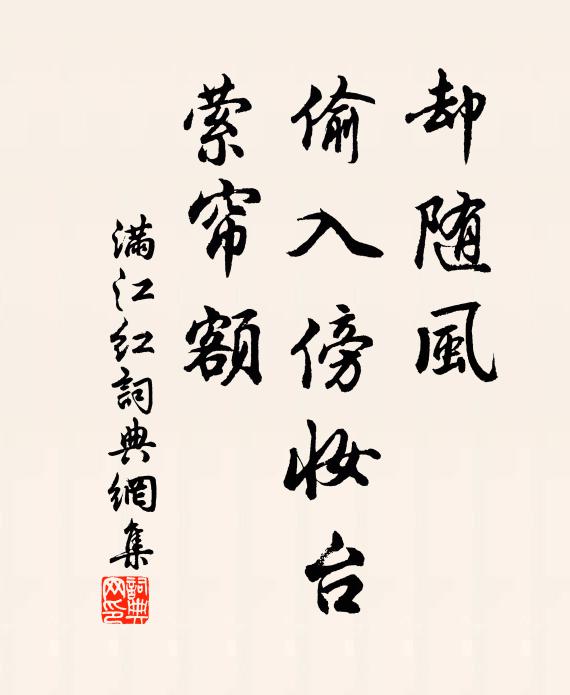 却随風
偷入傍妆台
萦帘额
满江红詞典網集
詞典网印